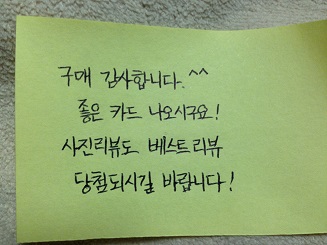 구매 감사합니다.^^
좋은 카드 나오시구요!
사진리뷰도 베스트리뷰
당첨되시길 바랍니다!